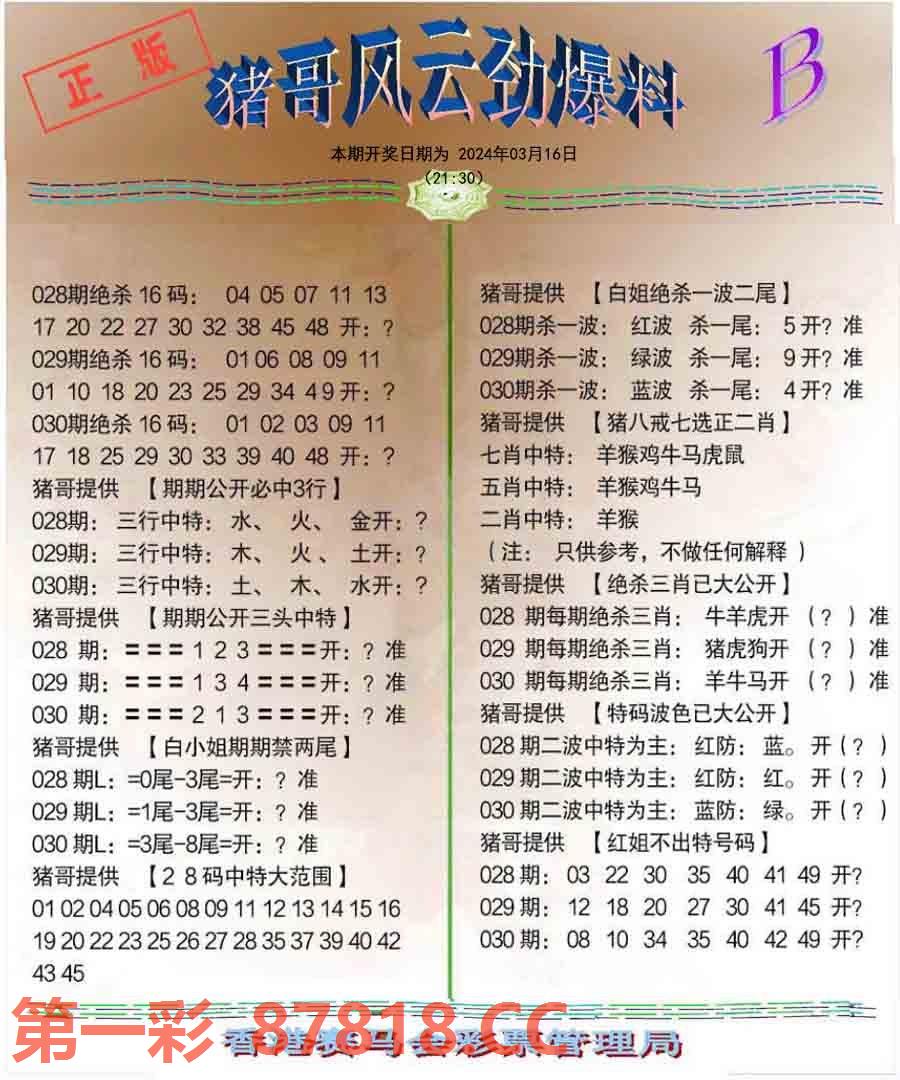 正版
猪哥风云劲爆料
B
本期开奖日期为 2024年03月16日
(21:30)
028期绝杀 16 码： 04 05 07 11 13
17 20 22 27 30 32 38 45 48 开：?
029期绝杀 16 码： 01 06 08 09 11
01 10 18 20 23 25 29 34 49 开：?
030期绝杀 16 码： 01 02 03 09 11
17 18 25 29 30 33 39 40 48 开：?
猪哥提供 【期期公开必中3行】
028期： 三行中特：水、 火、 金开：?
029期： 三行中特：木、 火、 土开：?
030期： 三行中特：土、 木、 水开：?
猪哥提供 【期期公开三头中特】
028 期：=== 1 2 3 ===开：? 准
029 期：=== 1 3 4 ===开：? 准
030 期：=== 2 1 3 ===开：? 准
猪哥提供 【白小姐期期禁两尾】
028 期L：=0尾-3尾=开：? 准
029 期L：=1尾-3尾=开：? 准
030 期L：=3尾-8尾=开：? 准
猪哥提供 【2 8 码中特大范围】
01 02 04 05 06 08 09 11 12 13 14 15 16
19 20 22 23 25 26 27 28 35 37 39 40 42
43 45
猪哥提供 【白姐绝杀一波二尾】
028期杀一波： 红波 杀一尾： 5 开? 准
029期杀一波： 绿波 杀一尾： 9 开? 准
030期杀一波： 蓝波 杀一尾： 4 开? 准
猪哥提供 【猪八戒七选正二肖】
七肖中特： 羊猴鸡牛马虎鼠
五肖中特： 羊猴鸡牛马
二肖中特： 羊猴
（注： 只供参考，不做任何解释 ）
猪哥提供 【绝杀三肖已大公开】
028 期每期绝杀三肖： 牛羊虎开 （? ）准
029 期每期绝杀三肖： 猪虎狗开 （? ）准
030 期每期绝杀三肖： 羊牛马开 （? ）准
猪哥提供 【特码波色已大公开】
028 期二波中特为主：红防：蓝。开（? ）
029 期二波中特为主：红防：红。开（? ）
030 期二波中特为主：蓝防：绿。开（? ）
猪哥提供 【红姐不出特号码】
028 期： 03 22 30 35 40 41 49 开?
029 期： 12 18 20 27 30 41 45 开?
030 期： 08 10 34 35 40 42 49 开?
第一彩 87818.CC
香港赛马会彩票管理局